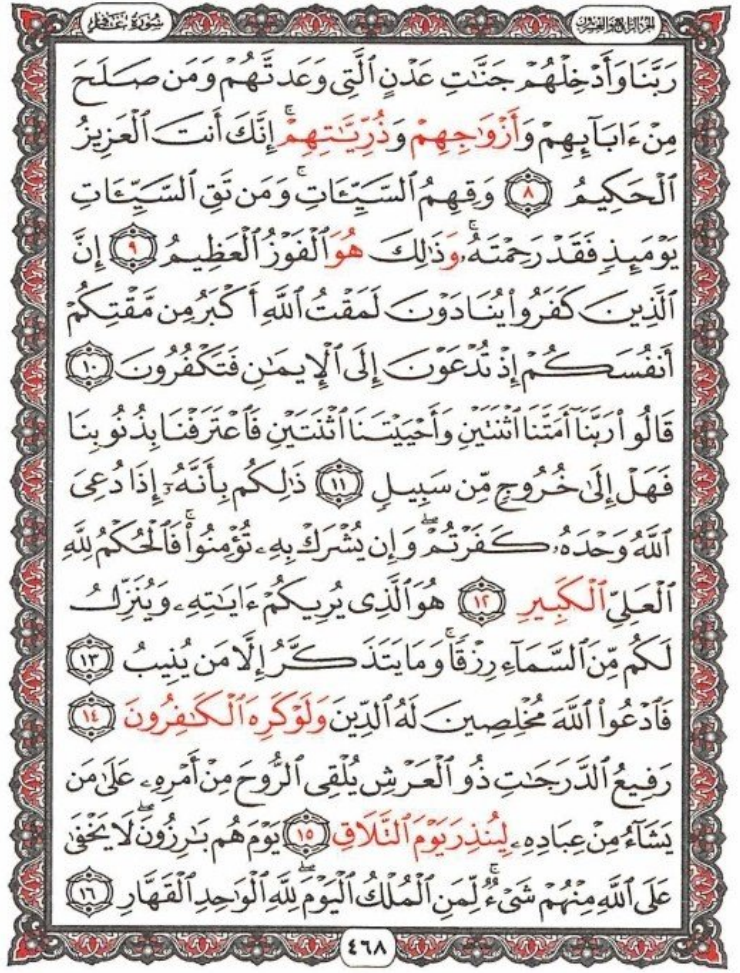 سورة غافر
الجزء الرابع والعشرون
رَبَّنَا وَأَدْخِلْهُمْ جَنَّٰتِ عَدْنٍ ٱلَّتِى وَعَدتَّهُمْ وَمَن صَلَحَ
مِنْ ءَابَآئِهِمْ وَأَزْوَٰجِهِمْ وَذُرِّيَّٰتِهِمْ ۚ إِنَّكَ أَنتَ ٱلْعَزِيزُ
ٱلْحَكِيمُ ٨ وَقِهِمُ ٱلسَّيِّـَٔاتِ ۚ وَمَن تَقِ ٱلسَّيِّـَٔاتِ
يَوْمَئِذٍ فَقَدْ رَحِمْتَهُۥ ۚ وَذَٰلِكَ هُوَ ٱلْفَوْزُ ٱلْعَظِيمُ ٩ إِنَّ
ٱلَّذِينَ كَفَرُوا۟ يُنَادَوْنَ لَمَقْتُ ٱللَّهِ أَكْبَرُ مِن مَّقْتِكُمْ
أَنفُسَكُمْ إِذْ تُدْعَوْنَ إِلَى ٱلْإِيمَٰنِ فَتَكْفُرُونَ ١٠
قَالُوا۟ رَبَّنَآ أَمَتَّنَا ٱثْنَتَيْنِ وَأَحْيَيْتَنَا ٱثْنَتَيْنِ فَٱعْتَرَفْنَا بِذُنُوبِنَا
فَهَلْ إِلَىٰ خُرُوجٍ مِّن سَبِيلٍ ١١ ذَٰلِكُم بِأَنَّهُۥٓ إِذَا دُعِىَ
ٱللَّهُ وَحْدَهُۥ كَفَرْتُمْ ۖ وَإِن يُشْرَكْ بِهِۦ تُؤْمِنُوا۟ ۚ فَٱلْحُكْمُ لِلَّهِ
ٱلْعَلِىِّ ٱلْكَبِيرِ ١٢ هُوَ ٱلَّذِى يُرِيكُمْ ءَايَٰتِهِۦ وَيُنَزِّلُ
لَكُم مِّنَ ٱلسَّمَآءِ رِزْقًا ۚ وَمَا يَتَذَكَّرُ إِلَّا مَن يُنِيبُ ١٣
فَٱدْعُوا۟ ٱللَّهَ مُخْلِصِينَ لَهُ ٱلدِّينَ وَلَوْ كَرِهَ ٱلْكَٰفِرُونَ ١٤
رَفِيعُ ٱلدَّرَجَٰتِ ذُو ٱلْعَرْشِ يُلْقِى ٱلرُّوحَ مِنْ أَمْرِهِۦ عَلَىٰ مَن
يَشَآءُ مِنْ عِبَادِهِۦ لِيُنذِرَ يَوْمَ ٱلتَّلَاقِ ١٥ يَوْمَ هُم بَٰرِزُونَ ۖ لَا يَخْفَىٰ
عَلَى ٱللَّهِ مِنْهُمْ شَىْءٌ ۚ لِّمَنِ ٱلْمُلْكُ ٱلْيَوْمَ ۖ لِلَّهِ ٱلْوَٰحِدِ ٱلْقَهَّارِ ١٦
٤٦٨